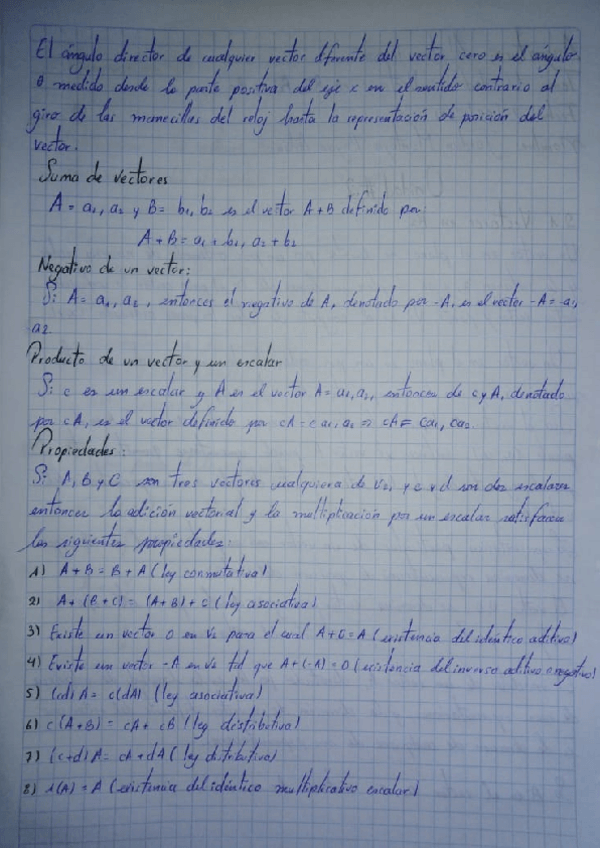 El ángulo director de cualquier vector diferente del vector cero es el ángulo
θ medido desde la parte positiva del eje x en el sentido contrario al
giro de las manecillas del reloj hasta la representación de posición del
vector.
Suma de vectores
A = a1, a2 y B = b1, b2 es el vector A+B definido por:
A+B = a1 + b1, a2 + b2
Negativo de un vector:
Si A = a1, a2, entonces el negativo de A, denotado por -A, es el vector -A = -a1,
a2
Producto de un vector y un escalar
Si c es un escalar y A es el vector A = a1, a2, entonces de c y A, denotado
por cA, es el vector definido por cA = c a1, a2 ⇒ cA = ca1, ca2.
Propiedades:
Si A, B y C son tres vectores cualquiera de V2, y c y d son dos escalares
entonces la adición vectorial y la multiplicación por un escalar satisfacen
las siguientes propiedades:
1) A+B = B+A (ley conmutativa)
2) A+(B+C) = (A+B)+C (ley asociativa)
3) Existe un vector 0 en V2 para el cual A+0=A (existencia del idéntico aditivo)
4) Existe un vector -A en V2 tal que A+(-A)=0 (existencia del inverso aditivo o negativo)
5) (cd)A = c(dA) (ley asociativa)
6) c(A+B) = cA + cB (ley distributiva)
7) (c+d)A = cA+dA (ley distributiva)
8) 1(A) = A (existencia del idéntico multiplicativo escalar)